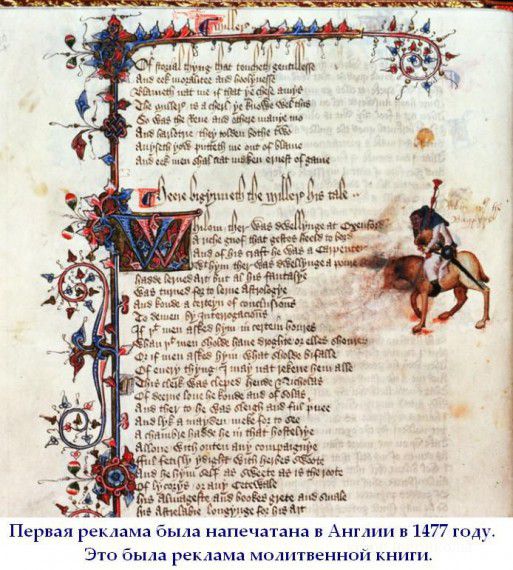 Miller
Of storial thyng that toucheth gentillesse
And eek moralitee and hoolynesse
Blameth nat me if that ye chese amys
The Millere is a cherl ye knowe wel this
So was the Reue and othere manye mo
And harlotrie they tolden bothe two
Auyseth yow putteth me out of blame
And eek men shal nat maken ernest of game
Heere bigynneth the Millere his tale
Whilom ther was dwellynge at Oxenford
A riche gnof that gestes heeld to bord
And of his craft he was a Carpenter
With hym ther was dwellynge a poure
hadde lerned Art but al his fantasye
Was turned for to lerne Astrologye
And koude a certeyn of conclusions
To demen by interrogacions
If þt men asked hym in certein houres
Whan þt men sholde haue droghte or elles shoures
Or if men asked hym what sholde bifalle
Of euery thyng I may nat rekene hem alle
This clerk was cleped hende Nicholas
Of deerne loue he koude and of solas
And ther to he was sleigh and ful priuee
And lyk a mayden meke for to see
A chambre hadde he in that hostelrye
Allone with outen any compaignye
Ful fetisly ydight with herbes swoote
And he hym self as sweete as is the roote
Of lycorys or any Cetewale
His Almageste and bookes grete and smale
His Astrelabie longynge for his Art
Первая реклама была напечатана в Англии в 1477 году.
Это была реклама молитвенной книги.